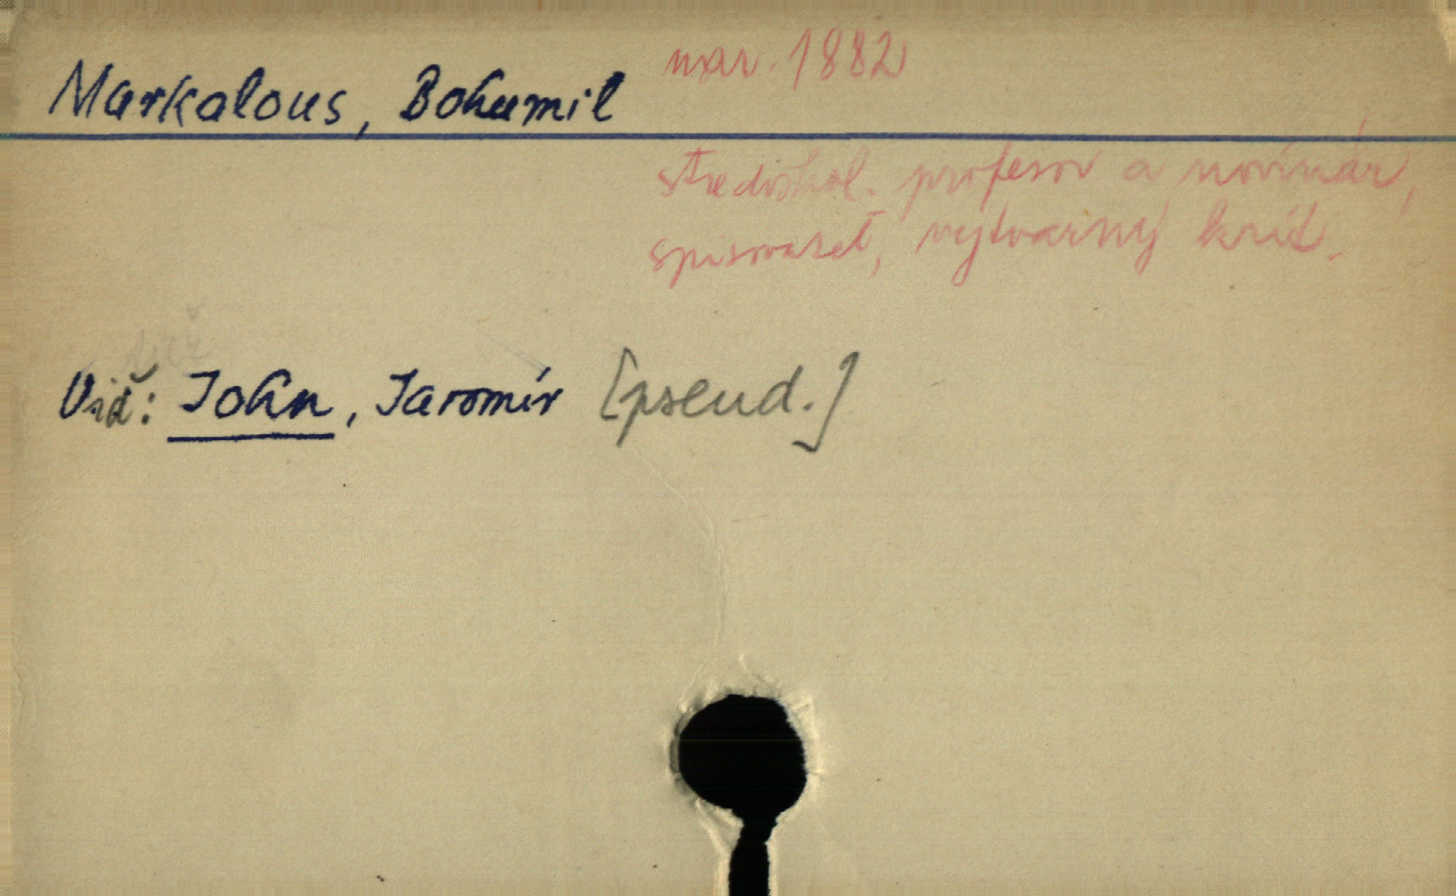 Markalous, Bohumil nar. 1882
středoškol. profesor a novinář,
spisovatel, výtvarný krit.
Viz: John, Jaromír [pseud.]